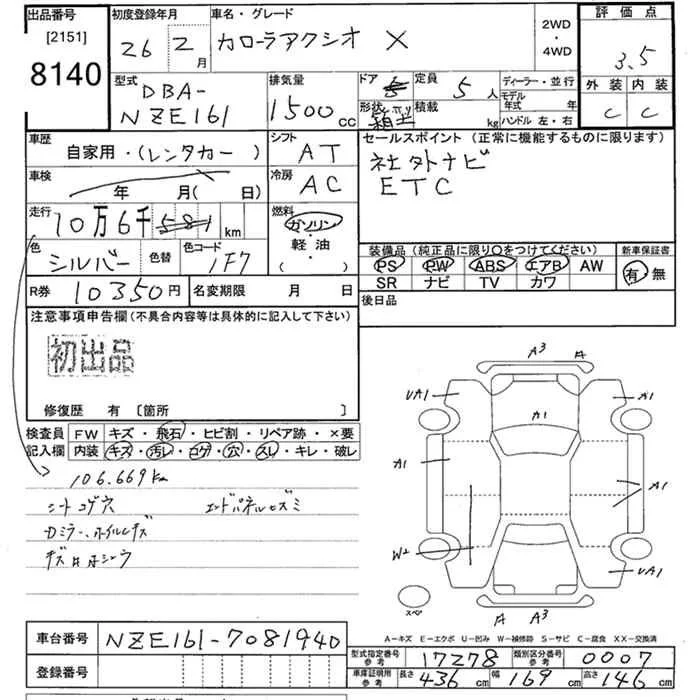 出品番号
[2151]
8140
初度登録年月
26年 2月
車名・グレード
カローラアクシオ X
2WD
・
4WD
評価点
3.5
外装 内装
C C
型式
DBA-
NZE161
排気量
1500cc
ドア 5
定員 5人
形状
積載 kg
ディーラー・並行
モデル
年式 年
ハンドル 左・右
車歴
自家用・(レンタカー)
シフト
AT
車検
年 月(日)
冷房
AC
走行
10万6千 581 km
燃料
ガソリン
軽油
(・)
色
シルバー
色替
色コード
1F7
R券 10350円
名変期限 月 日
セールスポイント (正常に機能するものに限ります)
社外ナビ
ETC
装備品 (純正品に限り○をつけてください)
PS PW ABS エアB AW
SR ナビ TV カワ
新車保証書
有 無
後日品
注意事項申告欄 (不具合内容等は具体的に記入して下さい)
初出品
修復歴 有 〔箇所 〕
検査員
記入欄
FW キズ・飛石・ヒビ割・リペア跡・×要
内装 キズ・汚レ・コゲ・穴・スレ・キレ・破レ
106.669km
シートコゲ穴 エンドパネルヒズミ
Dミラー、ホイルキズ
A3 A
UA1 A1
A1
A1 A1
W2 UA1
A A3
スペア
A-キズ E-エクボ U-凹み W-補修跡 S-サビ C-腐食 XX-交換済
車台番号 NZE161-7081940
登録番号
型式指定番号
参考
17278
類別区分番号
参考
0007
車庫証明用
参考
長さ 436cm 幅 169cm 高さ 146cm